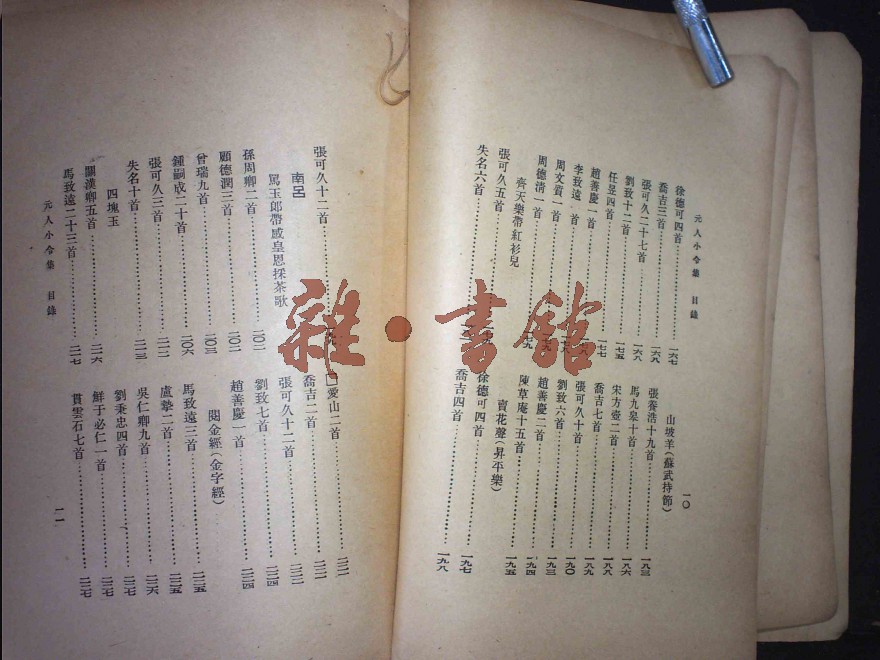 元人小令集 目錄
一〇
徐德可四首 一六七
喬吉三首 一六八
張可久二十七首 一六八
劉致十二首 一七五
任昱四首 一七七
趙善慶一首
李致遠一首
周文質一首
周德清一首
齊天樂帶紅衫兒
張可久五首
失名六首
山坡羊(蘇武持節)
張養浩十九首 一八三
馬九皋十首 一八六
宋方壺二首 一八八
喬吉七首 一八八
張可久十首 一八九
劉致六首 一九〇
趙善慶二首 一九三
陳草庵十五首 一九四
賣花聲(昇平樂)
徐德可四首 一九七
喬吉四首 一九八
張可久十二首
南呂
罵玉郎帶感皇恩採茶歌
孫周卿二首 二〇一
顧德潤三首 二〇二
曾瑞九首 二〇三
鍾嗣成二十首 二〇六
張可久三首 二一二
失名十首 二一三
四塊玉
關漢卿五首 二一六
馬致遠二十三首 二一七
元人小令集 目錄
愛山二首
喬吉二首
張可久十二首
劉致七首 二二四
趙善慶一首 二二四
閱金經(金字經)
馬致遠三首 二二五
盧摯二首 二二五
吳仁卿九首 二二六
劉秉忠四首 二二七
鮮于必仁一首 二二七
貫雲石七首 二二七
一一
雜·書館